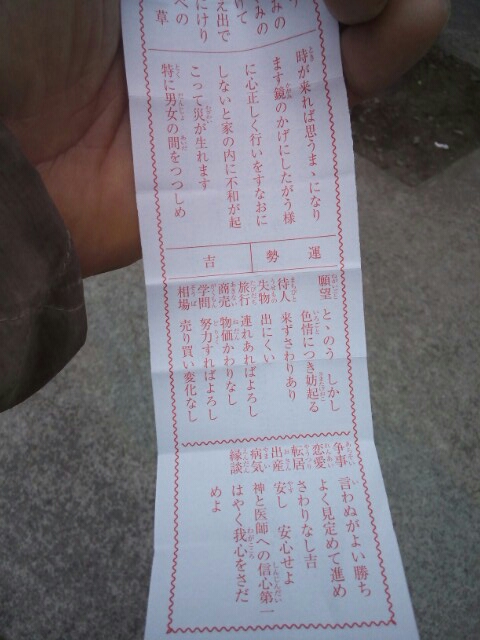 みの
みの
けて
え出で
にけり
への
草
時が来れば思うまゝになり
ます鏡のかげにしたがう様
に心正しく行いをすなおに
しないと家の内に不和が起
こって災が生れます
特に男女の間をつつしめ
運勢 吉
願望 とゝのう しかし
色情につき妨起る
待人 来ずさわりあり
失物 出にくい
旅行 連れあればよろし
商売 物価かわりなし
学問 努力すればよろし
相場 売り買い変化なし
争事 言わぬがよい勝ち
恋愛 よく見定めて進め
転居 さわりなし吉
出産 安し 安心せよ
病気 神と医師への信心第一
縁談 はやく我心をさだ
めよ